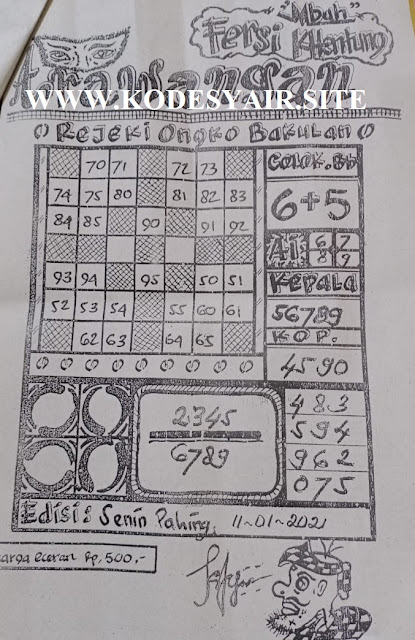 "Mbah"
Fersi Khentung
trawangan
WWW.KODESYAIR.SITE
Rejeki Ongko Bakulan
70 71 72 73
74 75 80 81 82 83
84 85 90 91 92
93 94 95 50 51
52 53 54 55 60 61
62 63 64 65
Colok.Bb
6+5
Ai 6 7
8 9
Kepala
56789
KOP.
4590
2345
6789
483
594
962
075
Edisi: Senin Pahing, 11-01-2021
arga eceran Rp,500,-